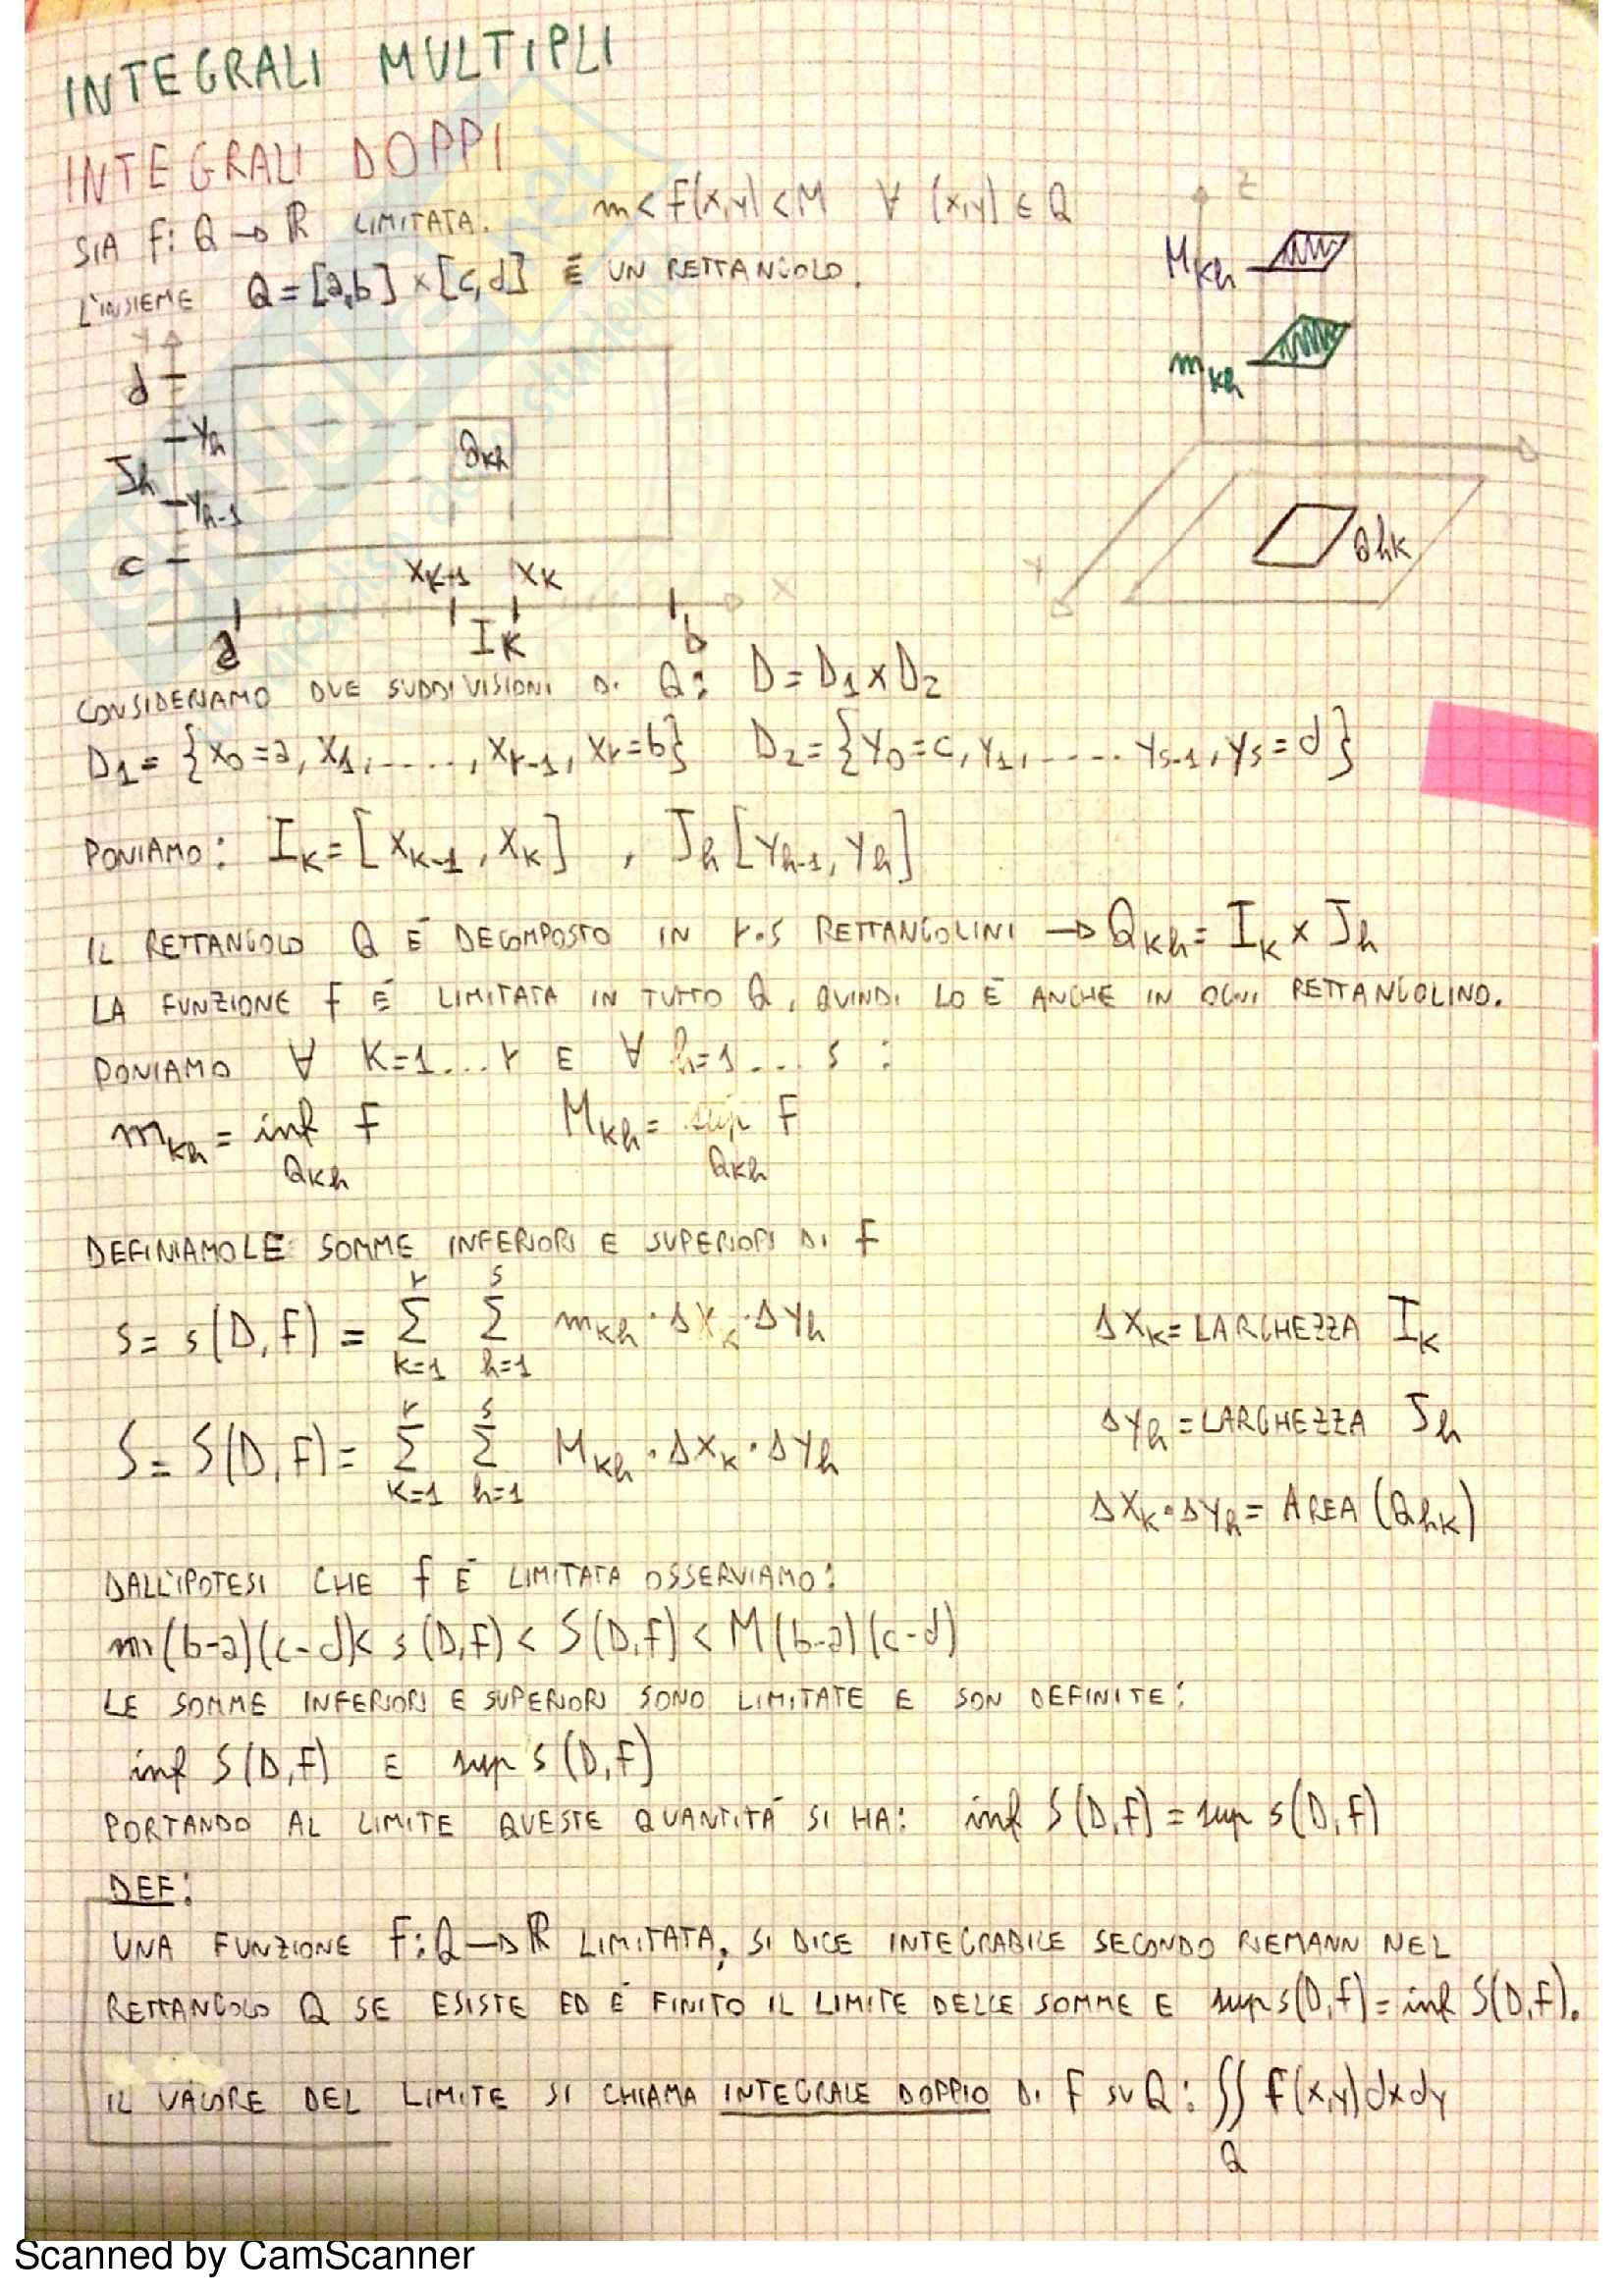 INTEGRALI MULTIPLI
INTEGRALI DOPPI
SIA f: Q → ℝ LIMITATA. m < f(x,y) < M ∀ (x,y) ∈ Q
L'INSIEME Q = [a,b] × [c,d] È UN RETTANGOLO.
z
M_kh
m_kh
Y
d
Y_h
J_h
Y_h-1
c
Q_kh
X_k-1 X_k
X
a
I_k
b
Y
Q_hk
CONSIDERIAMO DUE SUDDIVISIONI DI Q: D = D_1 × D_2
D_1 = {X_0 = a, X_1, ....., X_r-1, X_r = b} D_2 = {Y_0 = c, Y_1, ..... Y_s-1, Y_s = d}
PONIAMO: I_k = [X_k-1, X_k] , J_h [Y_h-1, Y_h]
IL RETTANGOLO Q È DECOMPOSTO IN r·s RETTANGOLINI → Q_kh = I_k × J_h
LA FUNZIONE f È LIMITATA IN TUTTO Q, QUINDI LO È ANCHE IN OGNI RETTANGOLINO.
PONIAMO ∀ K=1...r E ∀ h=1... s :
m_kh = inf f M_kh = sup F
Q_kh Q_kh
DEFINIAMO LE SOMME INFERIORI E SUPERIORI DI f
s = s(D,F) = Σ_{k=1}^{r} Σ_{h=1}^{s} m_kh · ΔX_k · ΔY_h
ΔX_k = LARGHEZZA I_k
S = S(D,F) = Σ_{k=1}^{r} Σ_{h=1}^{s} M_kh · ΔX_k · ΔY_h
ΔY_h = LARGHEZZA J_h
ΔX_k · ΔY_h = AREA (Q_hk)
DALL'IPOTESI CHE f È LIMITATA OSSERVIAMO:
m (b-a)(c-d) < s(D,F) < S(D,F) < M(b-a)(c-d)
LE SOMME INFERIORI E SUPERIORI SONO LIMITATE E SON DEFINITE:
inf S(D,F) E sup s(D,F)
PORTANDO AL LIMITE QUESTE QUANTITÀ SI HA: inf S(D,F) = sup s(D,F)
DEF:
UNA FUNZIONE f: Q → ℝ LIMITATA, SI DICE INTEGRABILE SECONDO RIEMANN NEL
RETTANGOLO Q SE ESISTE ED È FINITO IL LIMITE DELLE SOMME E sup s(D,f) = inf S(D,F).
IL VALORE DEL LIMITE SI CHIAMA INTEGRALE DOPPIO DI F SU Q: ∬ f(x,y)dxdy
Q
Scanned by CamScanner